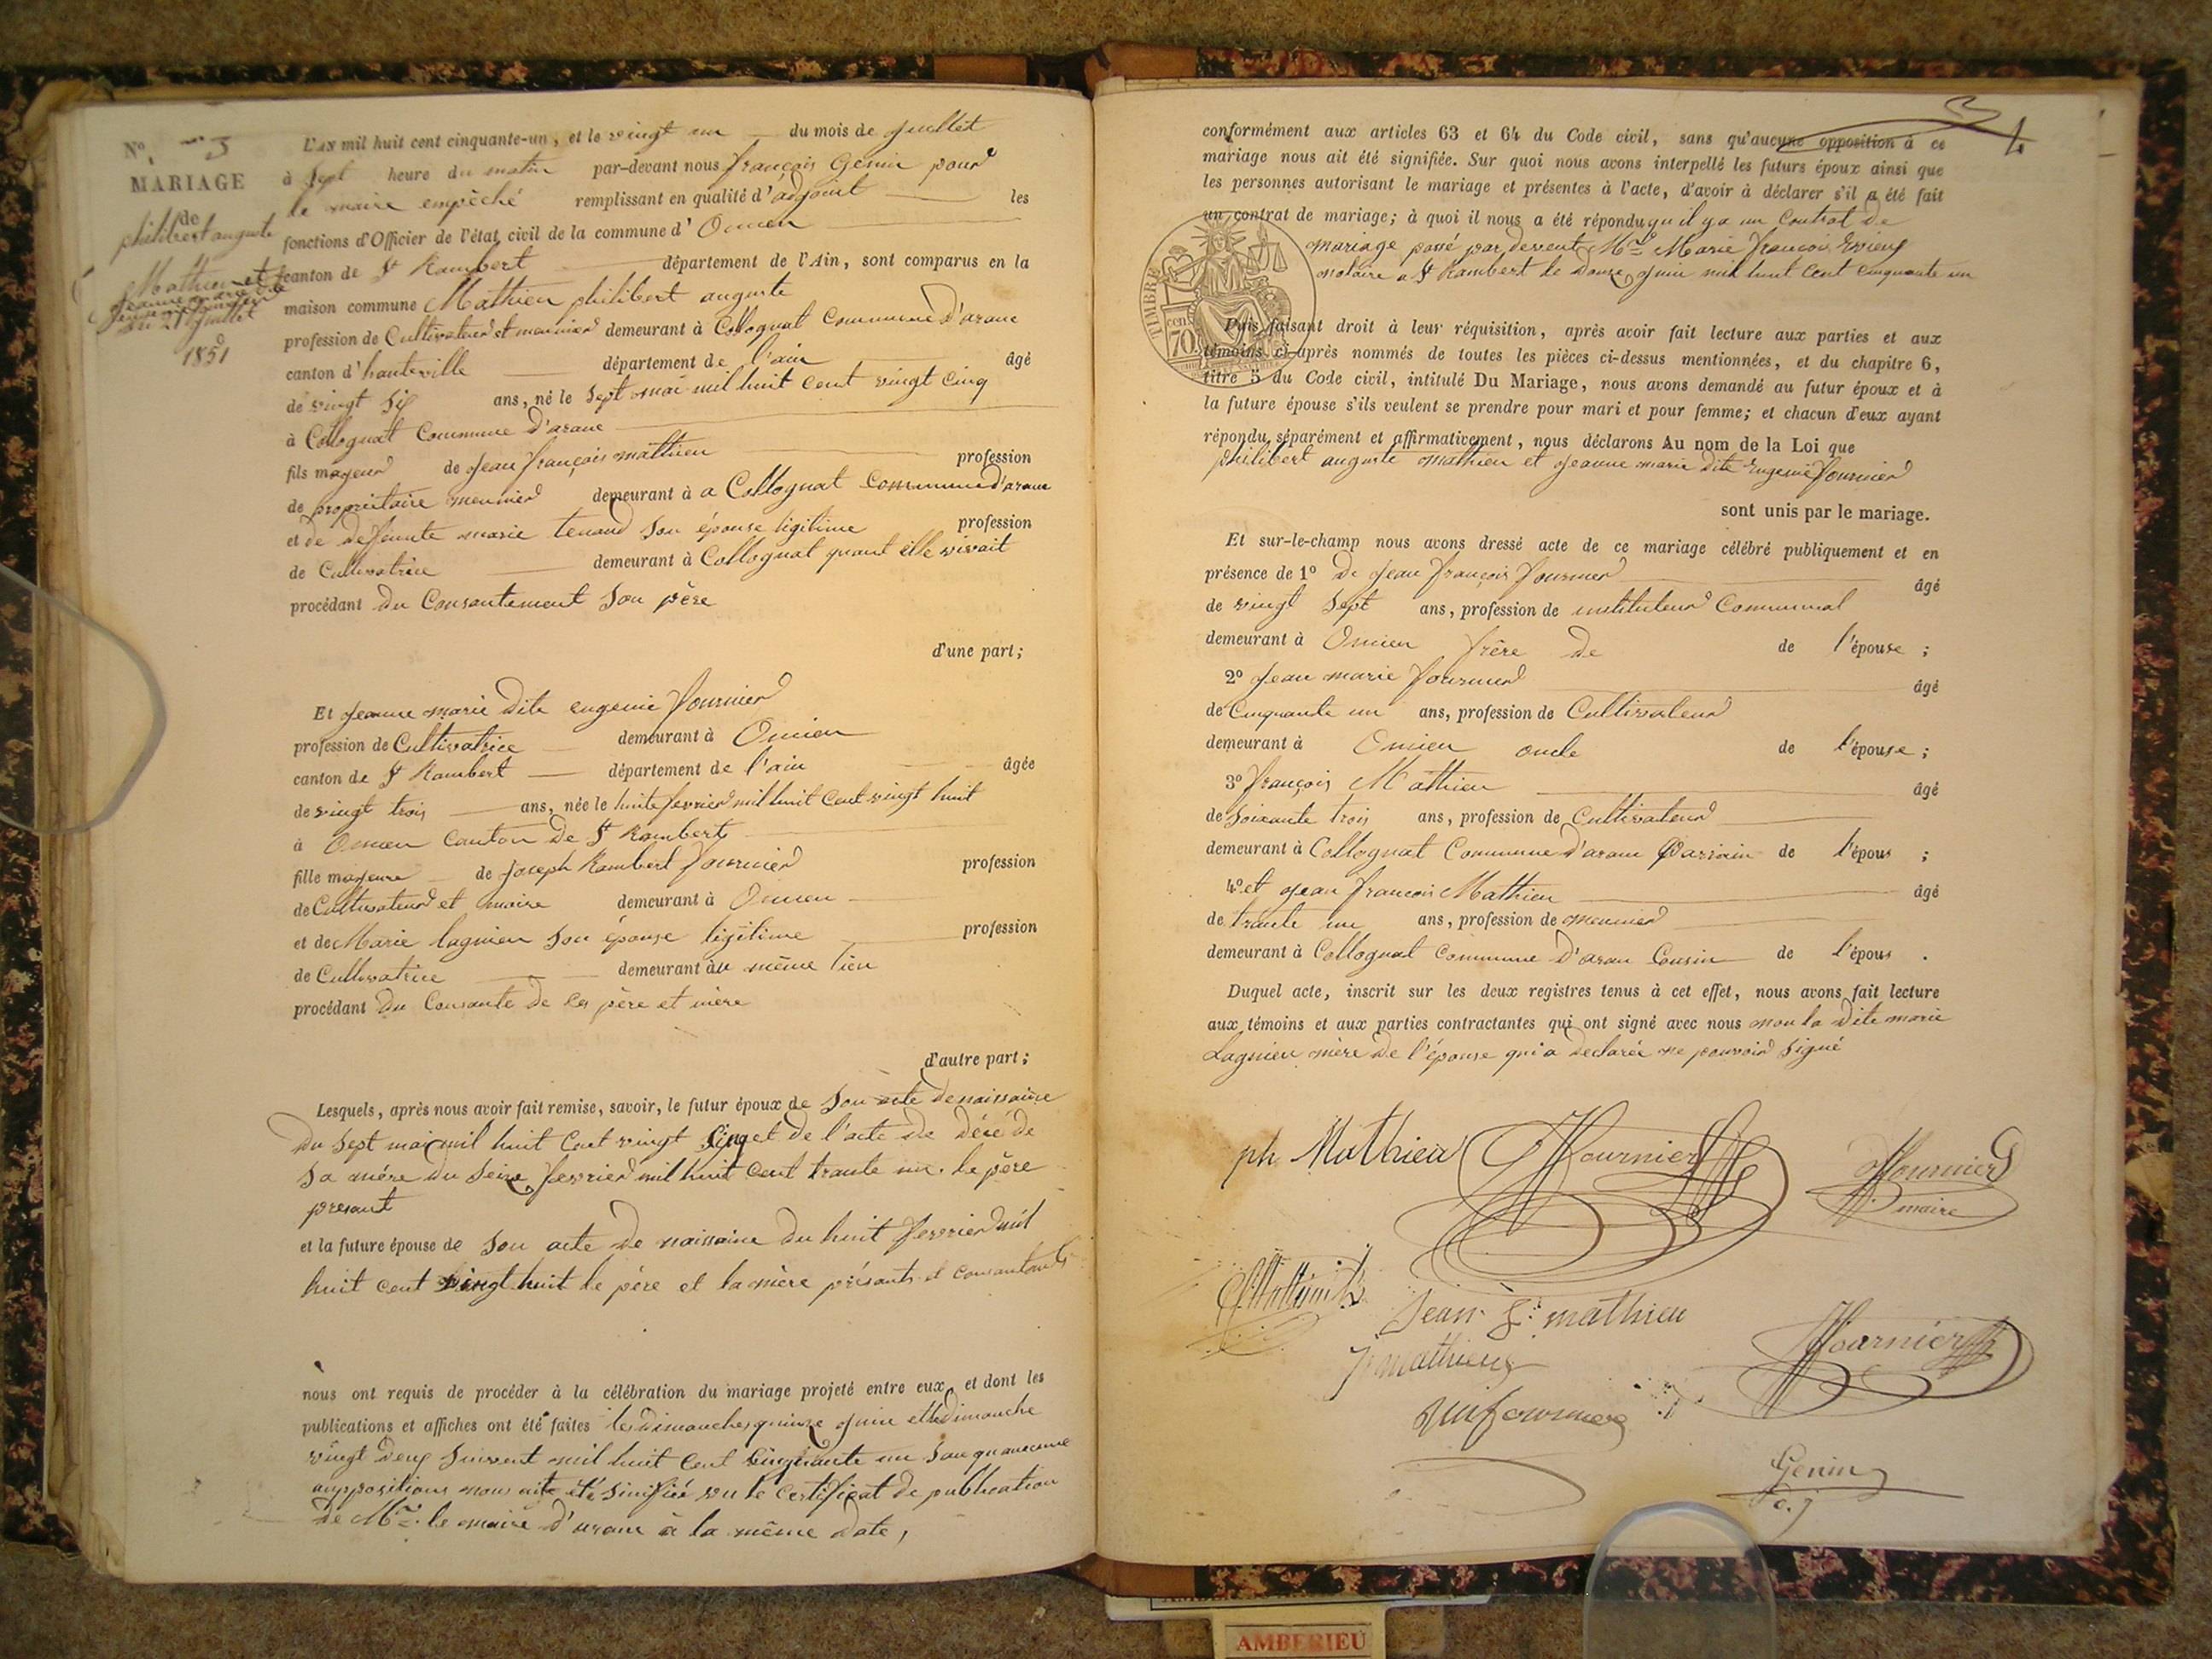 N° 3
MARIAGE
de
philibert auguste
Mathieu et
jeanne marie dite
eugenie fournier
du 21 juillet
1851
L'AN mil huit cent cinquante-un, et le vingt un du mois de juillet
à sept heure du matin par-devant nous françois Genin pour
le maire empêché remplissant en qualité d'adjoint les
fonctions d'Officier de l'état civil de la commune d' Oncieu
canton de St Rambert département de l'Ain, sont comparus en la
maison commune Mathieu philibert auguste
profession de Cultivateur et meunier demeurant à Collognat Commune d'arane
canton d'hauteville département de l'ain âgé
de vingt six ans, né le sept mai mil huit cent vingt cinq
à Collognat Commune d'arane
fils majeur de jean françois mathieu profession
de propriétaire meunier demeurant à a Collognat Commune d'arane
et de defunte marie tenand son épouse ligitime profession
de Cultivatrice demeurant à Collognat quant elle vivait
procédant du Consantement son père
d'une part;
Et jeanne marie dite eugenie fournier
profession de Cultivatrice demeurant à Oncieu
canton de St Rambert département de l'ain âgée
de vingt trois ans, née le huite fevrier mil huit cent vingt huit
à Oncieu canton de St Rambert
fille majeure de joseph Rambert fournier profession
de Cultivateur et maire demeurant à Oncieu
et de Marie lagnieu son épouse ligitime profession
de Cultivatrice demeurant àu même lieu
procédant du Consante de ces père et mère
d'autre part;
Lesquels, après nous avoir fait remise, savoir, le futur époux de son acte de naissance
du sept mai mil huit cent vingt cinq et de l'acte de décé de
sa mére du seize fevrier mil huit cent trante un. le père
presant
et la future épouse de son acte de naissance du huit fevrier mil
huit cent vingt huit le père et la mère présants et consantants
nous ont requis de procéder à la célébration du mariage projeté entre eux, et dont les
publications et affiches ont été faites les dimanches quinze juin et le dimanche
vingt deux suivent mil huit cent cinquante un san qu'aucune
auppositions nous aite été sinifiée vu le certificat de publication
de Mr le maire d'arane à la même date,
3
4
conformément aux articles 63 et 64 du Code civil, sans qu'aucune opposition à ce
mariage nous ait été signifiée. Sur quoi nous avons interpellé les futurs époux ainsi que
les personnes autorisant le mariage et présentes à l'acte, d'avoir à déclarer s'il a été fait
un contrat de mariage; à quoi il nous a été répondu qu'il y a un Contrat de
mariage passé par devent Mre Marie francois
notaire a St Rambert le douze juin mil huit cent cinquante un
TIMBRE
cen
70
Puis faisant droit à leur réquisition, après avoir fait lecture aux parties et aux
témoins ci-après nommés de toutes les pièces ci-dessus mentionnées, et du chapitre 6,
titre 5 du Code civil, intitulé Du Mariage, nous avons demandé au futur époux et à
la future épouse s'ils veulent se prendre pour mari et pour femme; et chacun d'eux ayant
répondu séparément et affirmativement, nous déclarons Au nom de la Loi que
philibert auguste mathieu et jeanne marie dite Eugenie fournier
sont unis par le mariage.
Et sur-le-champ nous avons dressé acte de ce mariage célébré publiquement et en
présence de 1° De jean françois fournier âgé
de vingt sept ans, profession de instituteur Communal
demeurant à Oncieu frère de de l'épouse ;
2° jean marie fournier âgé
de Cinquante un ans, profession de Cultivateur
demeurant à Oncieu oncle de l'épouse ;
3° françois Mathieu âgé
de soixante trois ans, profession de Cultivateur
demeurant à Collognat Commune d'arane Parrain de l'épous ;
4° et jean francois Mathieu âgé
de trante un ans, profession de meunier
demeurant à Collognat Commune d'aran Cousin de l'épous .
Duquel acte, inscrit sur les deux registres tenus à cet effet, nous avons fait lecture
aux témoins et aux parties contractantes qui ont signé avec nous non la dite marie
Lagnieu mère de l'épouse qui a declarée ne pouvoir signé
ph Mathieu
Fournier
Fournier
maire
Jean F. mathieu
mathieu
Fournier
fournier
Genin
a. j
AMBERIEU